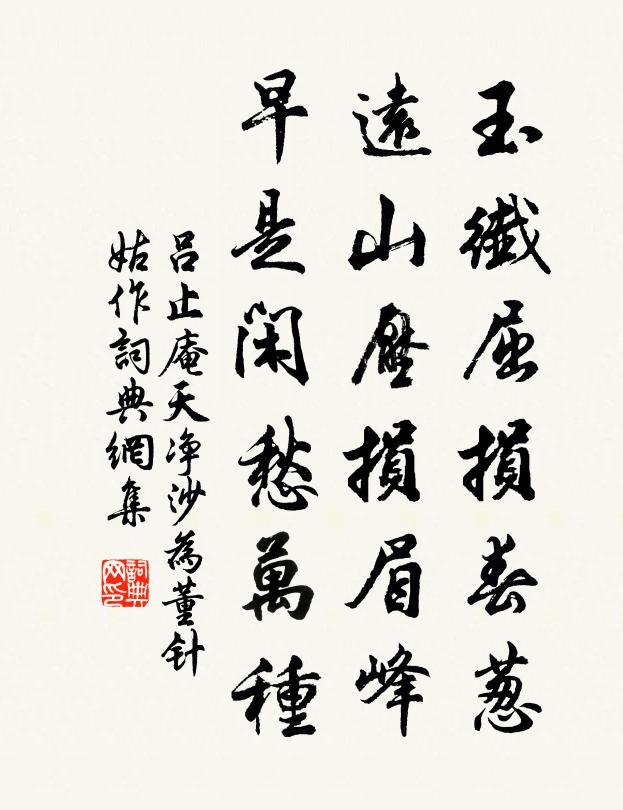 玉纖屈損春葱
遠山壓損眉峰
早是閑愁萬種
吕止庵天净沙為董针
姑作詞典網集
詞典網印